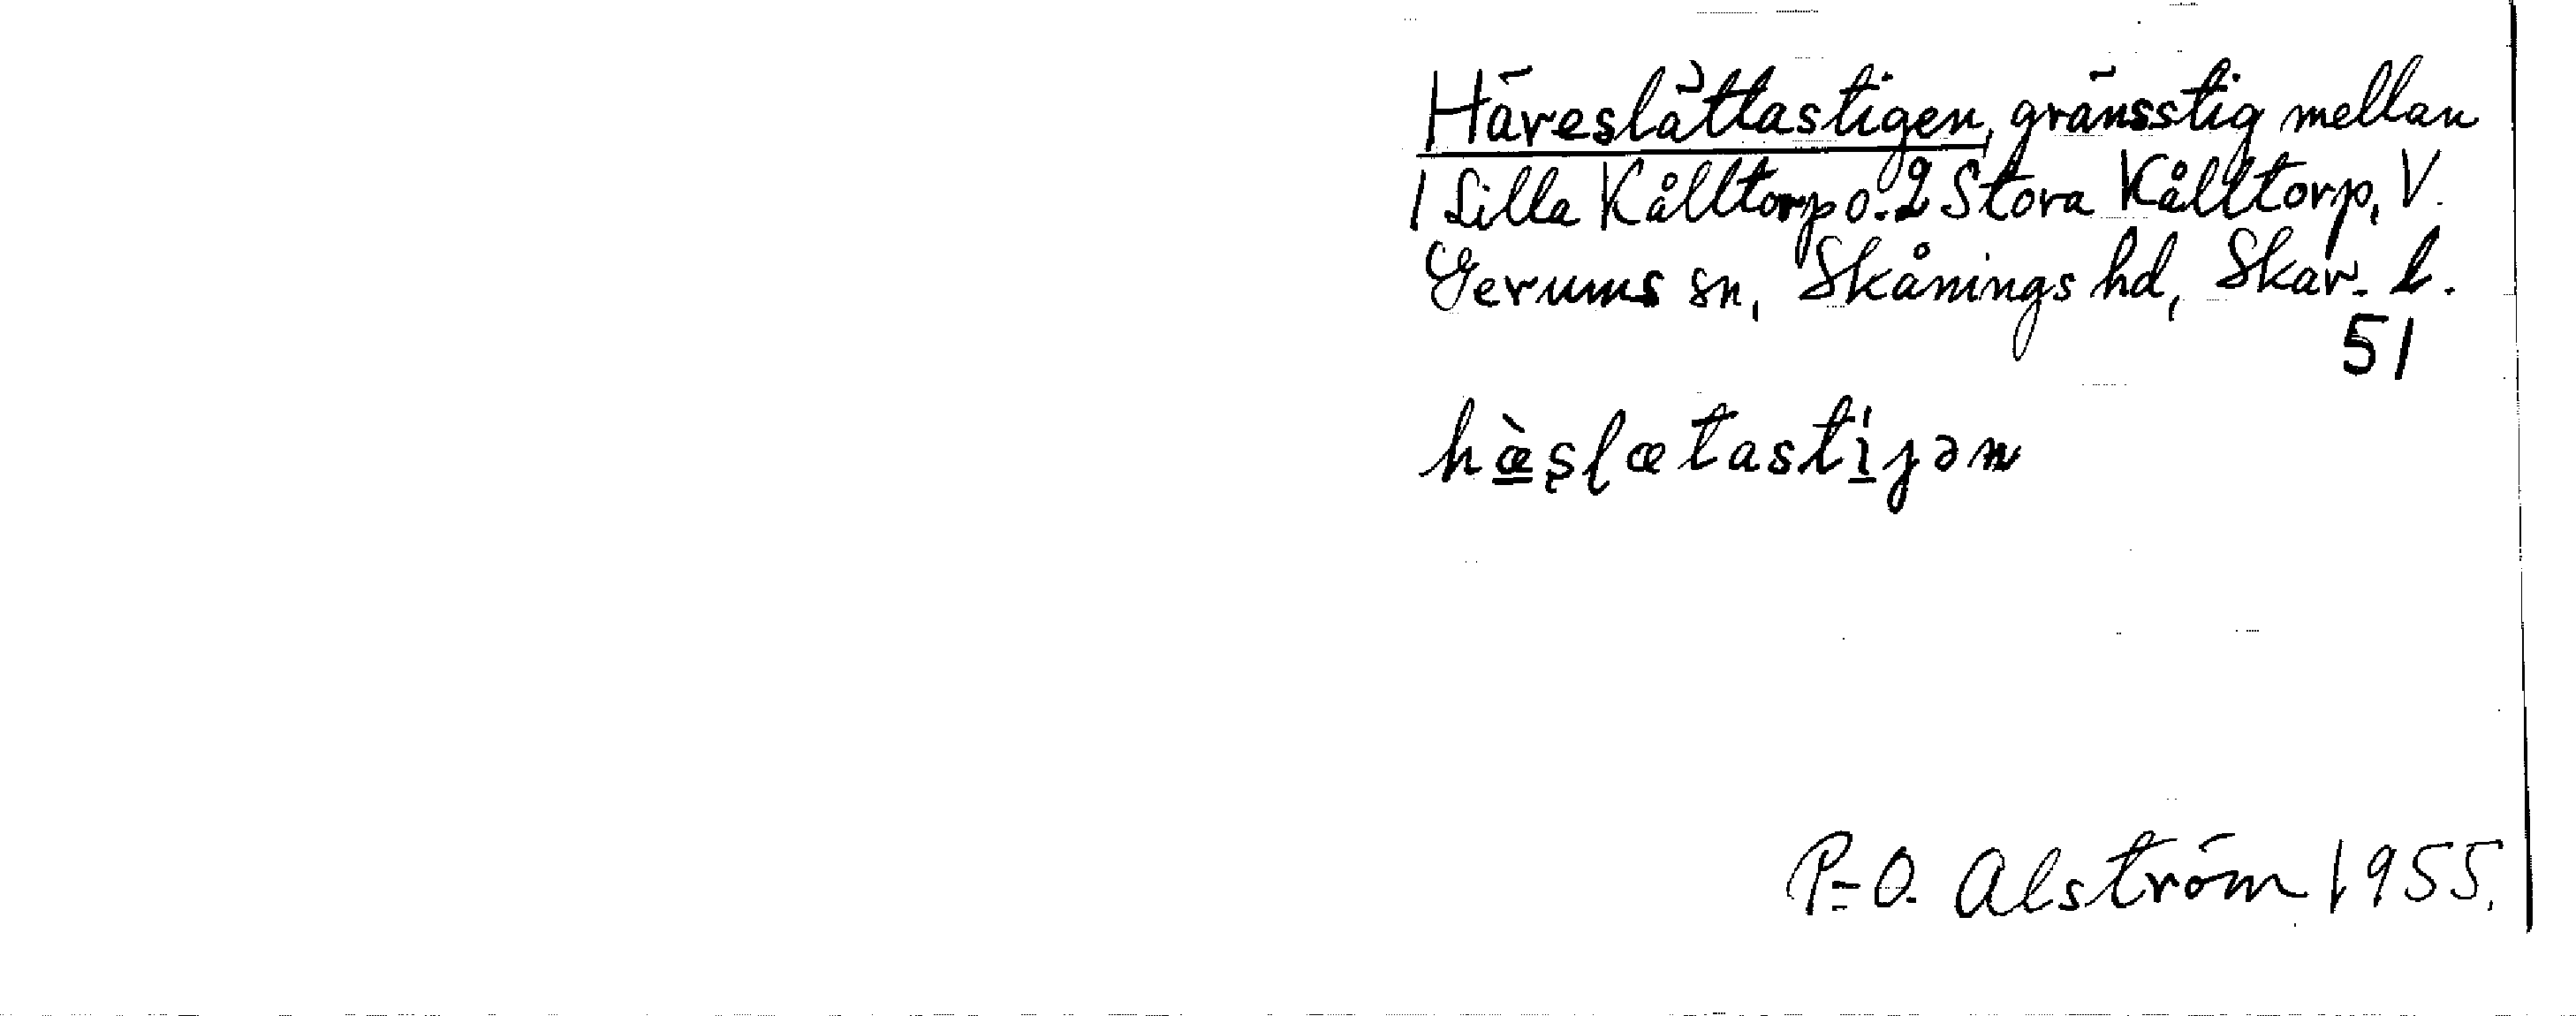 Häreslättastigen, gränsstig mellan
1 Lilla Kålltorp o. 2 Stora Kålltorp, V.
Gerums sn, Skånings hd, Skar. l.
51
hæ̀s̨lætastíjən
P-O. Alström 1955.